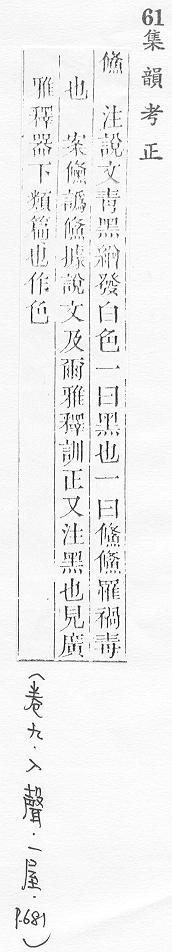 61 集韻考正
儵 注說文青黑繒發白色一曰黑也一曰儵儵罹禍毒
也 案儵譌儵據說文及爾雅釋訓正又注黑也見廣
雅釋器下類篇也作色
(卷九.入聲.一屋.P.681)